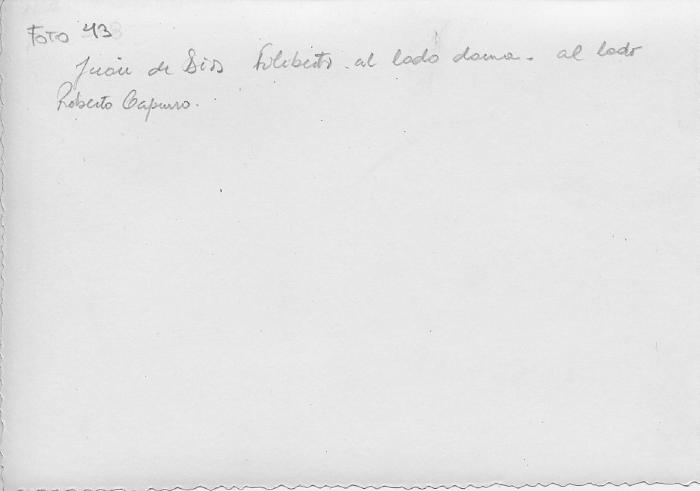 Foto 43
Juan de Dios Filiberto. al lado dama. al lado
Roberto Capurro.